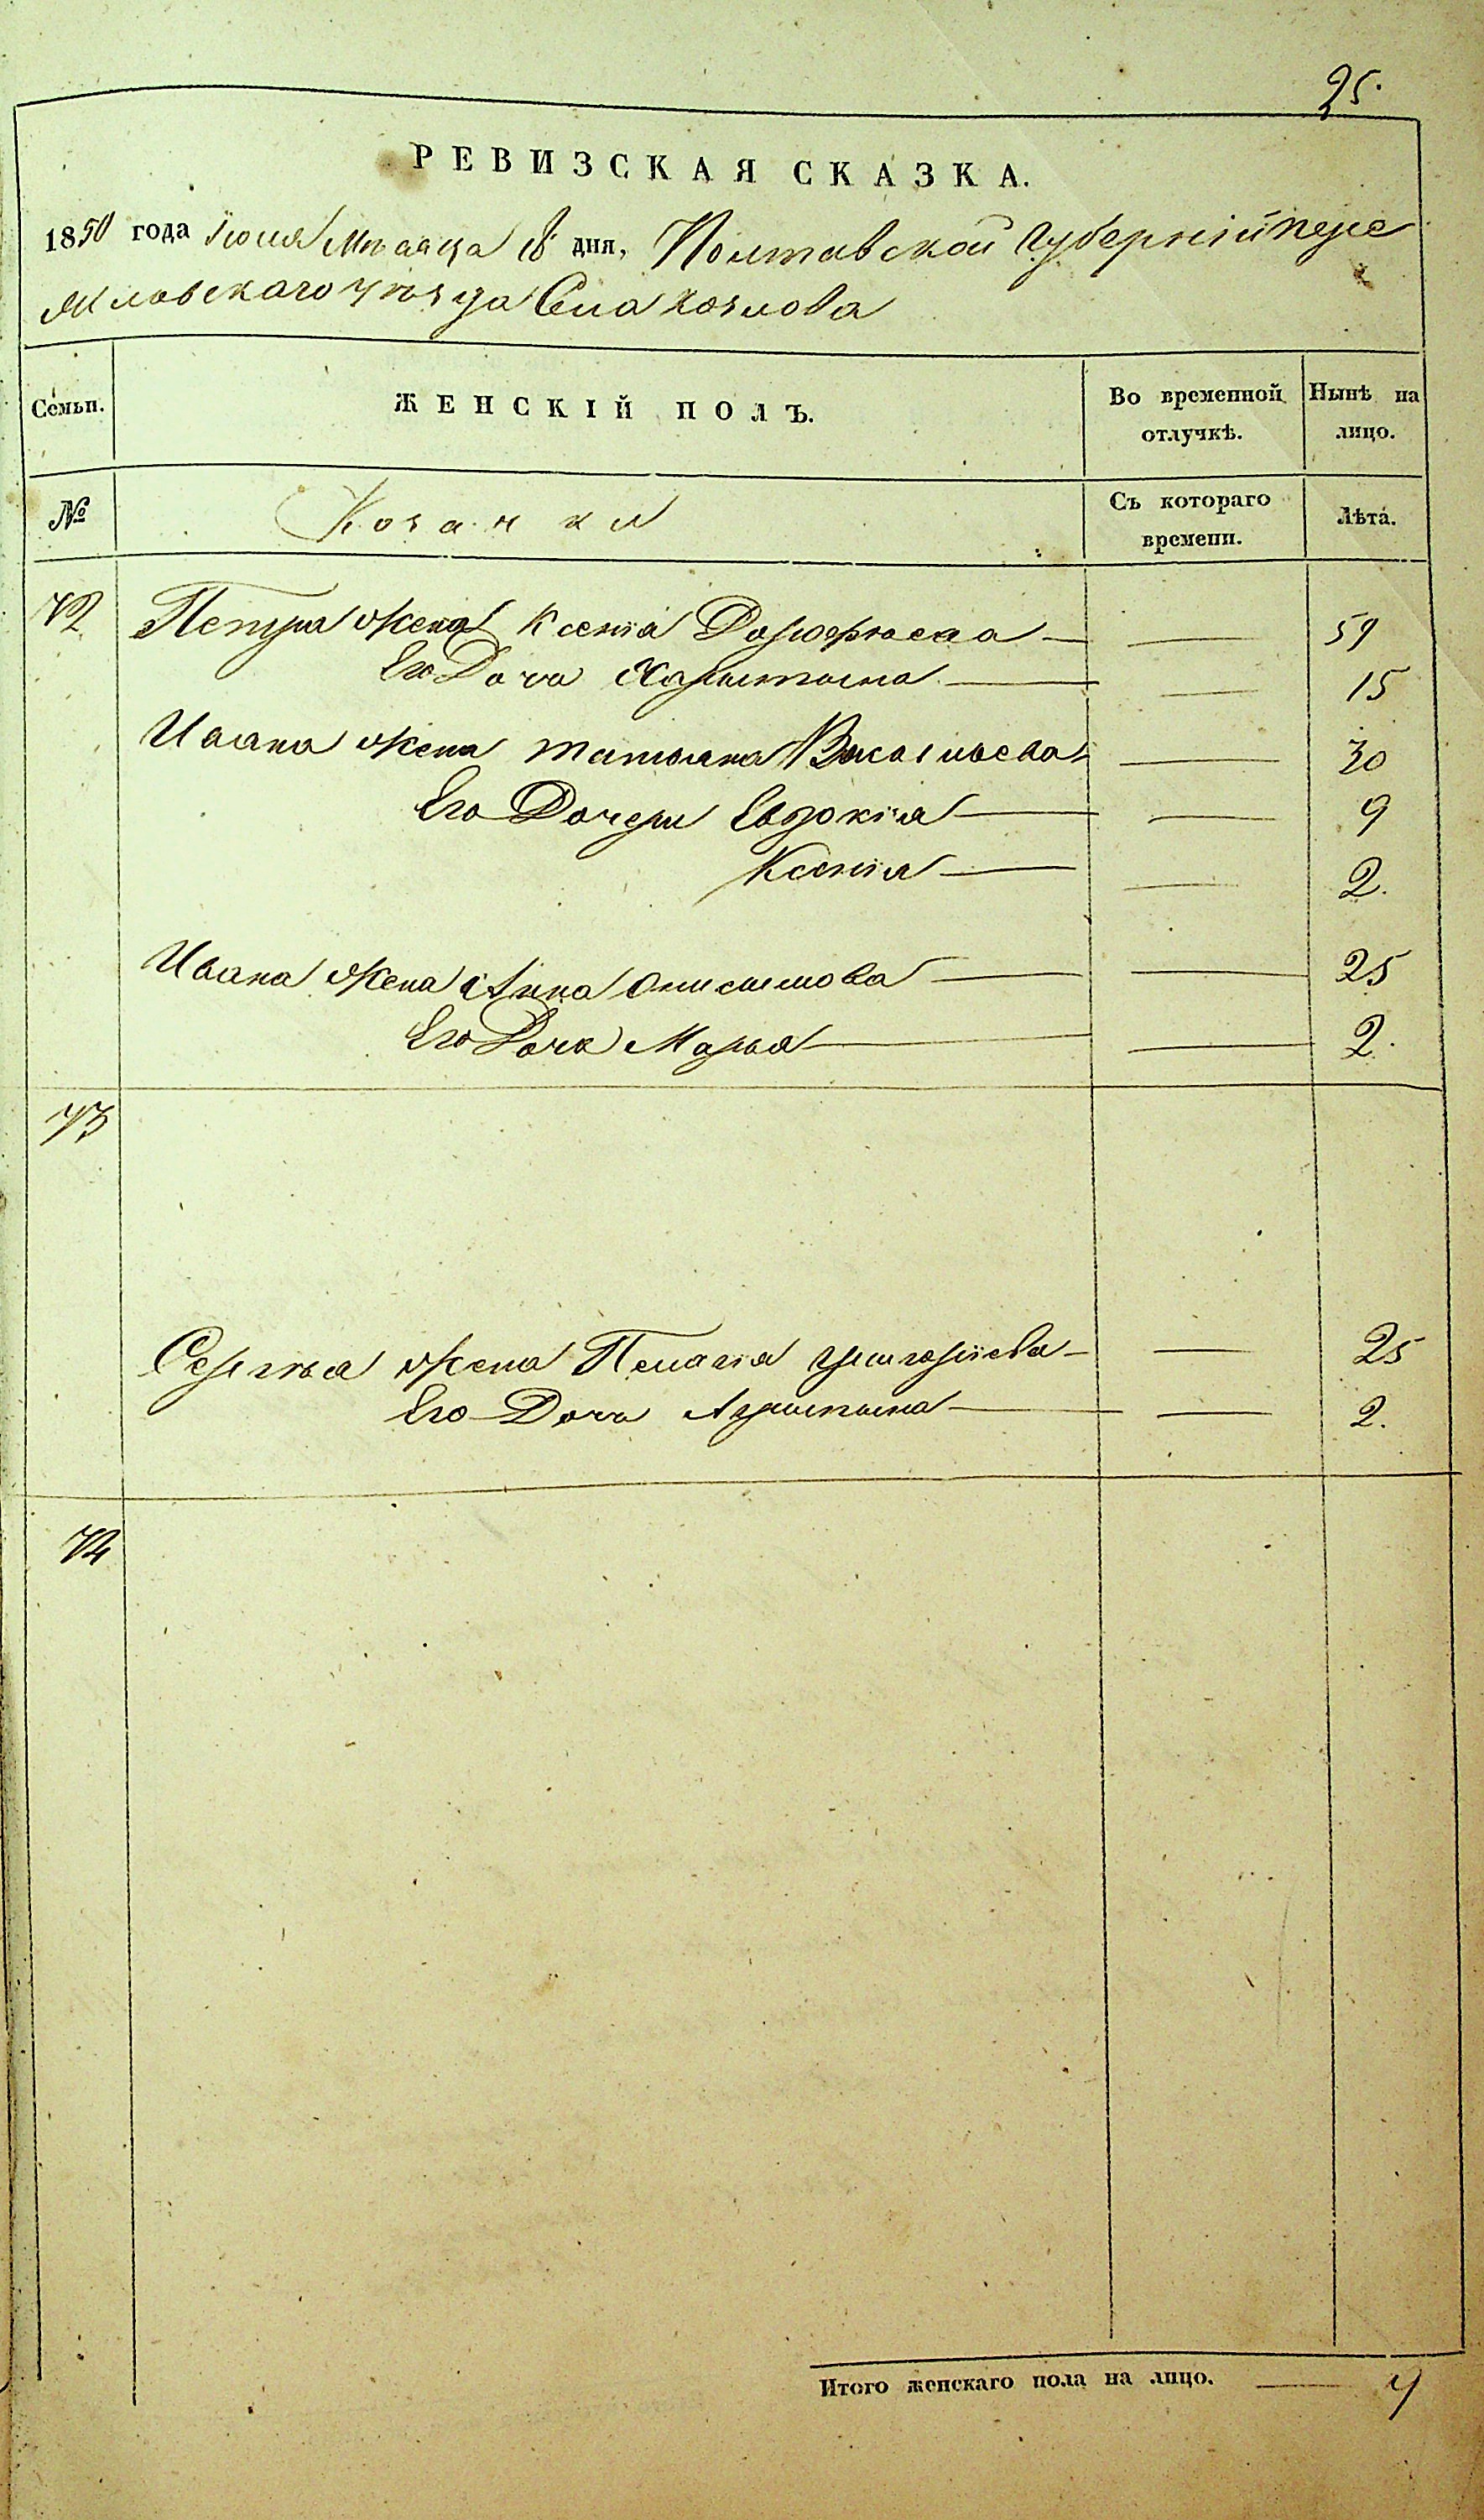 25.
РЕВИЗСКАЯ СКАЗКА.
1850 года Iюня Мѣсяца 18 дня, Полтавской Губернiй пере
яславскаго уѣзда Села козлова
Семьи. ЖЕНСКІЙ ПОЛЪ. Во временной отлучкѣ. Нынѣ на лицо.
№ Козачки Съ котораго времени. Лѣта.
72 Петра жена Ксенiа Дорофеева — — 59
Его Дочь Харитына — — 15
Ивана жена татьяна Васильева — — 30
Его Дочери Евдокiя — — 9
Ксенiя — — 2.
Ивана жена Анна Онисимова — — 25
Его Дочь Марья — — 2.
73
Сергея жена Пелагiя григорiева — — 25
Его Дочь — — 2.
74
Итого женскаго пола на лицо. — 9